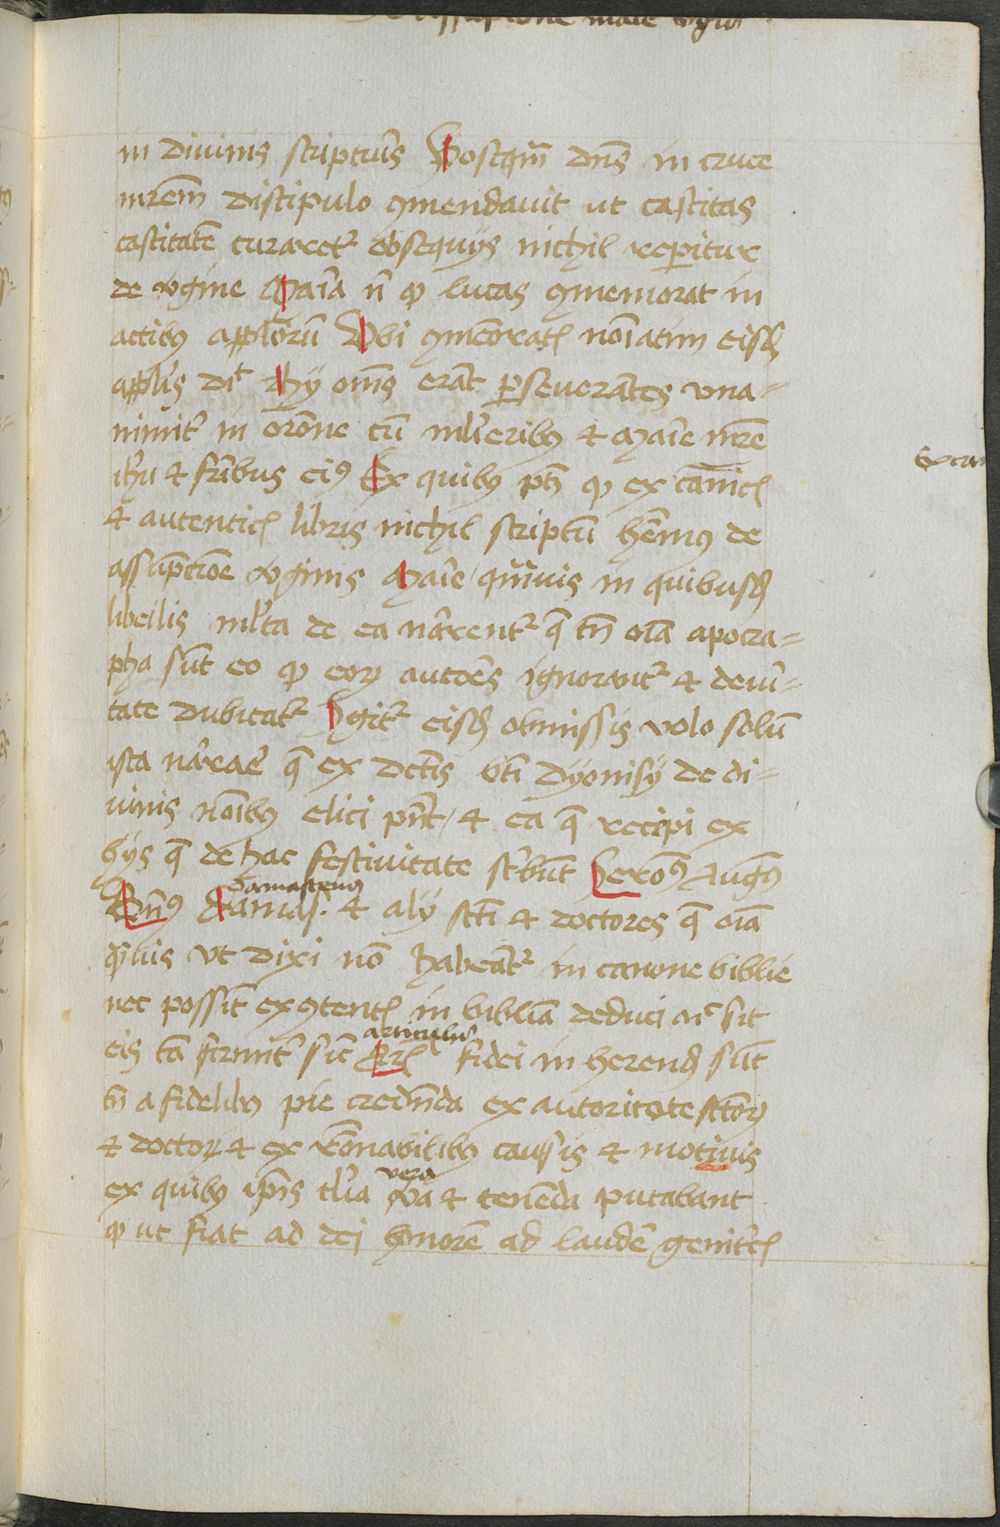 assumptione marie virginis
in diuinis scripturis Postqm dns in cruce
mrem discipulo 9mendauit ut castitas
castitate curaret obsequijs nichil reperitur
de vgine Maria n quod lucas 9memorat in
actibus applorum Vbi 9memorat noiatim eisdem
applis dicit Hij oms erat perseuerates vna-
nimit in orone cu mlieribus et marie mre
ihu et fribus eius Ex quibus patet quod ex canicis
et autenticis libris nichil scriptu hemus de
assumptioe vginis Marie / quuis in quibusdam
libellis mlta de ea narrent que tn oia apocra-
pha sunt eo quod eorum auctores ignorant et de veri-
tate dubitat Igit eisdem obmissis volo solu
ista narrare que ex dictis bti dyonisij de di-
uinis noibus elici pnt / et ea que recipi ex
hijs que de hac festiuitate scribut Ieronimus Augus
Damascenus
Bern9 Damas. et alij scti et doctores que oia
quis ut dixi no habeat in canone biblie
nec possint ex 9tentis in biblia deduci nec sit
articulis
eis ta firmit sicut Artis fidei inherend sunt
tn a fidelibus pie credenda ex autoritate sctorum
et doctorum et ex ronabilibus causis et motiuis
vera
ex quibus ipis tlia va et tenenda putabant
quod ut fiat ad dei honorem ad laude genitricis